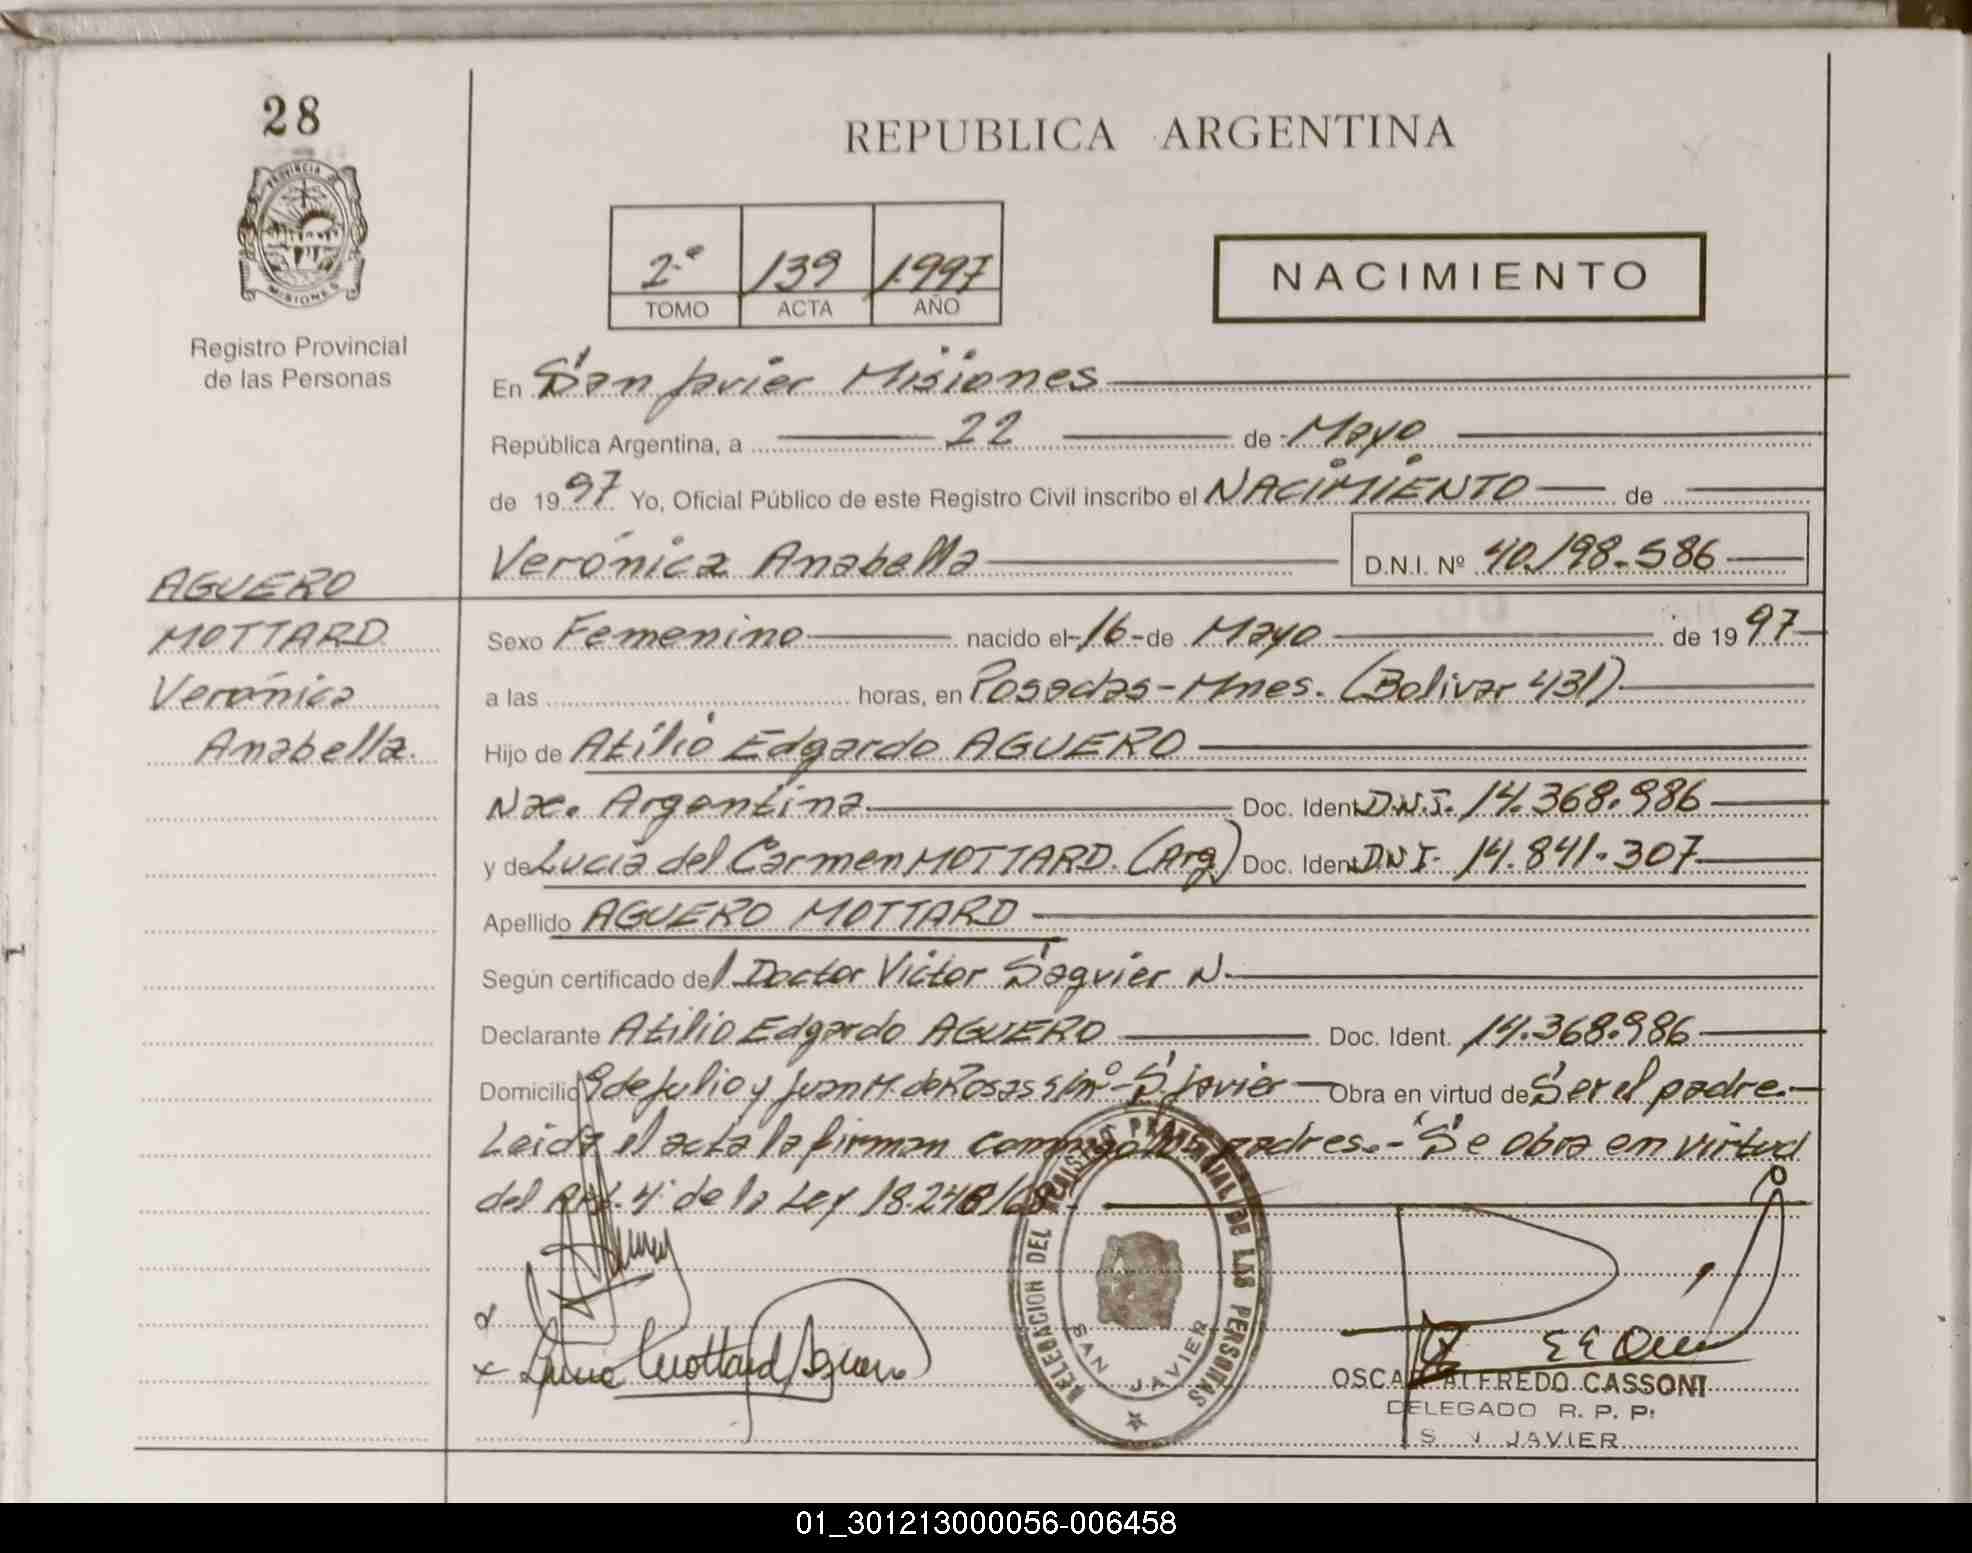 28
REPUBLICA ARGENTINA
PROVINCIA DE
MISIONES
Registro Provincial
de las Personas
2º 139 1.997
TOMO ACTA AÑO
NACIMIENTO
En San Javier Misiones
República Argentina, a 22 de Mayo
de 1997 Yo, Oficial Público de este Registro Civil inscribo el NACIMIENTO de
Verónica Anabella D.N.I. Nº 40.198.586
AGUERO
MOTTARD
Verónica
Anabella.
Sexo Femenino nacido el 16 de Mayo de 1997
a las horas, en Posadas - Mnes. (Bolivar 431)
Hijo de Atilio Edgardo AGUERO
Nac. Argentina Doc. Ident. D.N.I. 14.368.986
y de Lucia del Carmen MOTTARD. (Arg) Doc. Ident. D.N.I. 14.841.307
Apellido AGUERO MOTTARD
Según certificado del Doctor Victor Saguier N.
Declarante Atilio Edgardo AGUERO Doc. Ident. 14.368.986
Domicilio 9 de Julio y Juan M. de Rosas s/nº - S. Javier Obra en virtud de Ser el padre.-
Leida el acta la firman conmigo los padres.- Se obra en virtud
del Art. 4º de la Ley 18.248/69.-
DELEGACION DEL REGISTRO PROVINCIAL DE LAS PERSONAS
SAN JAVIER
OSCAR ALFREDO CASSONI
DELEGADO R. P. P.
S. JAVIER
01_301213000056-006458